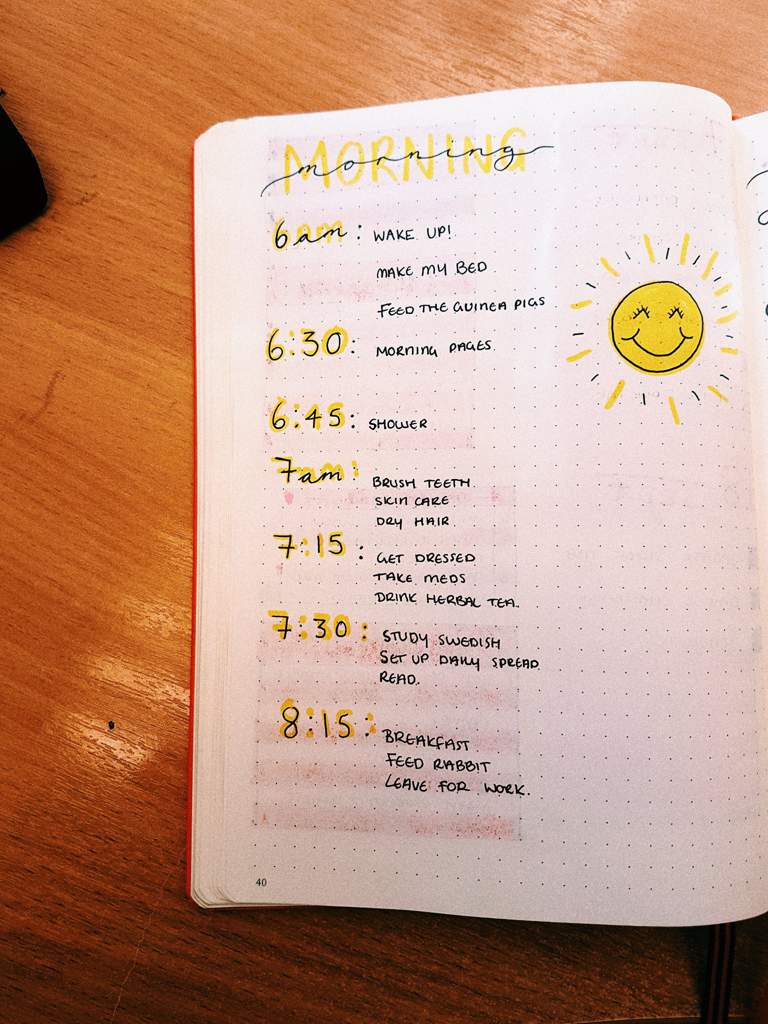 MORNING
morning
6am: WAKE UP!
MAKE MY BED
FEED THE GUINEA PIGS
6:30: MORNING PAGES.
6:45: SHOWER
7am: BRUSH TEETH.
SKIN CARE
DRY HAIR.
7:15: GET DRESSED
TAKE MEDS
DRINK HERBAL TEA.
7:30: STUDY SWEDISH
SET UP DAILY SPREAD.
READ.
8:15: BREAKFAST
FEED RABBIT
LEAVE FOR WORK.
40